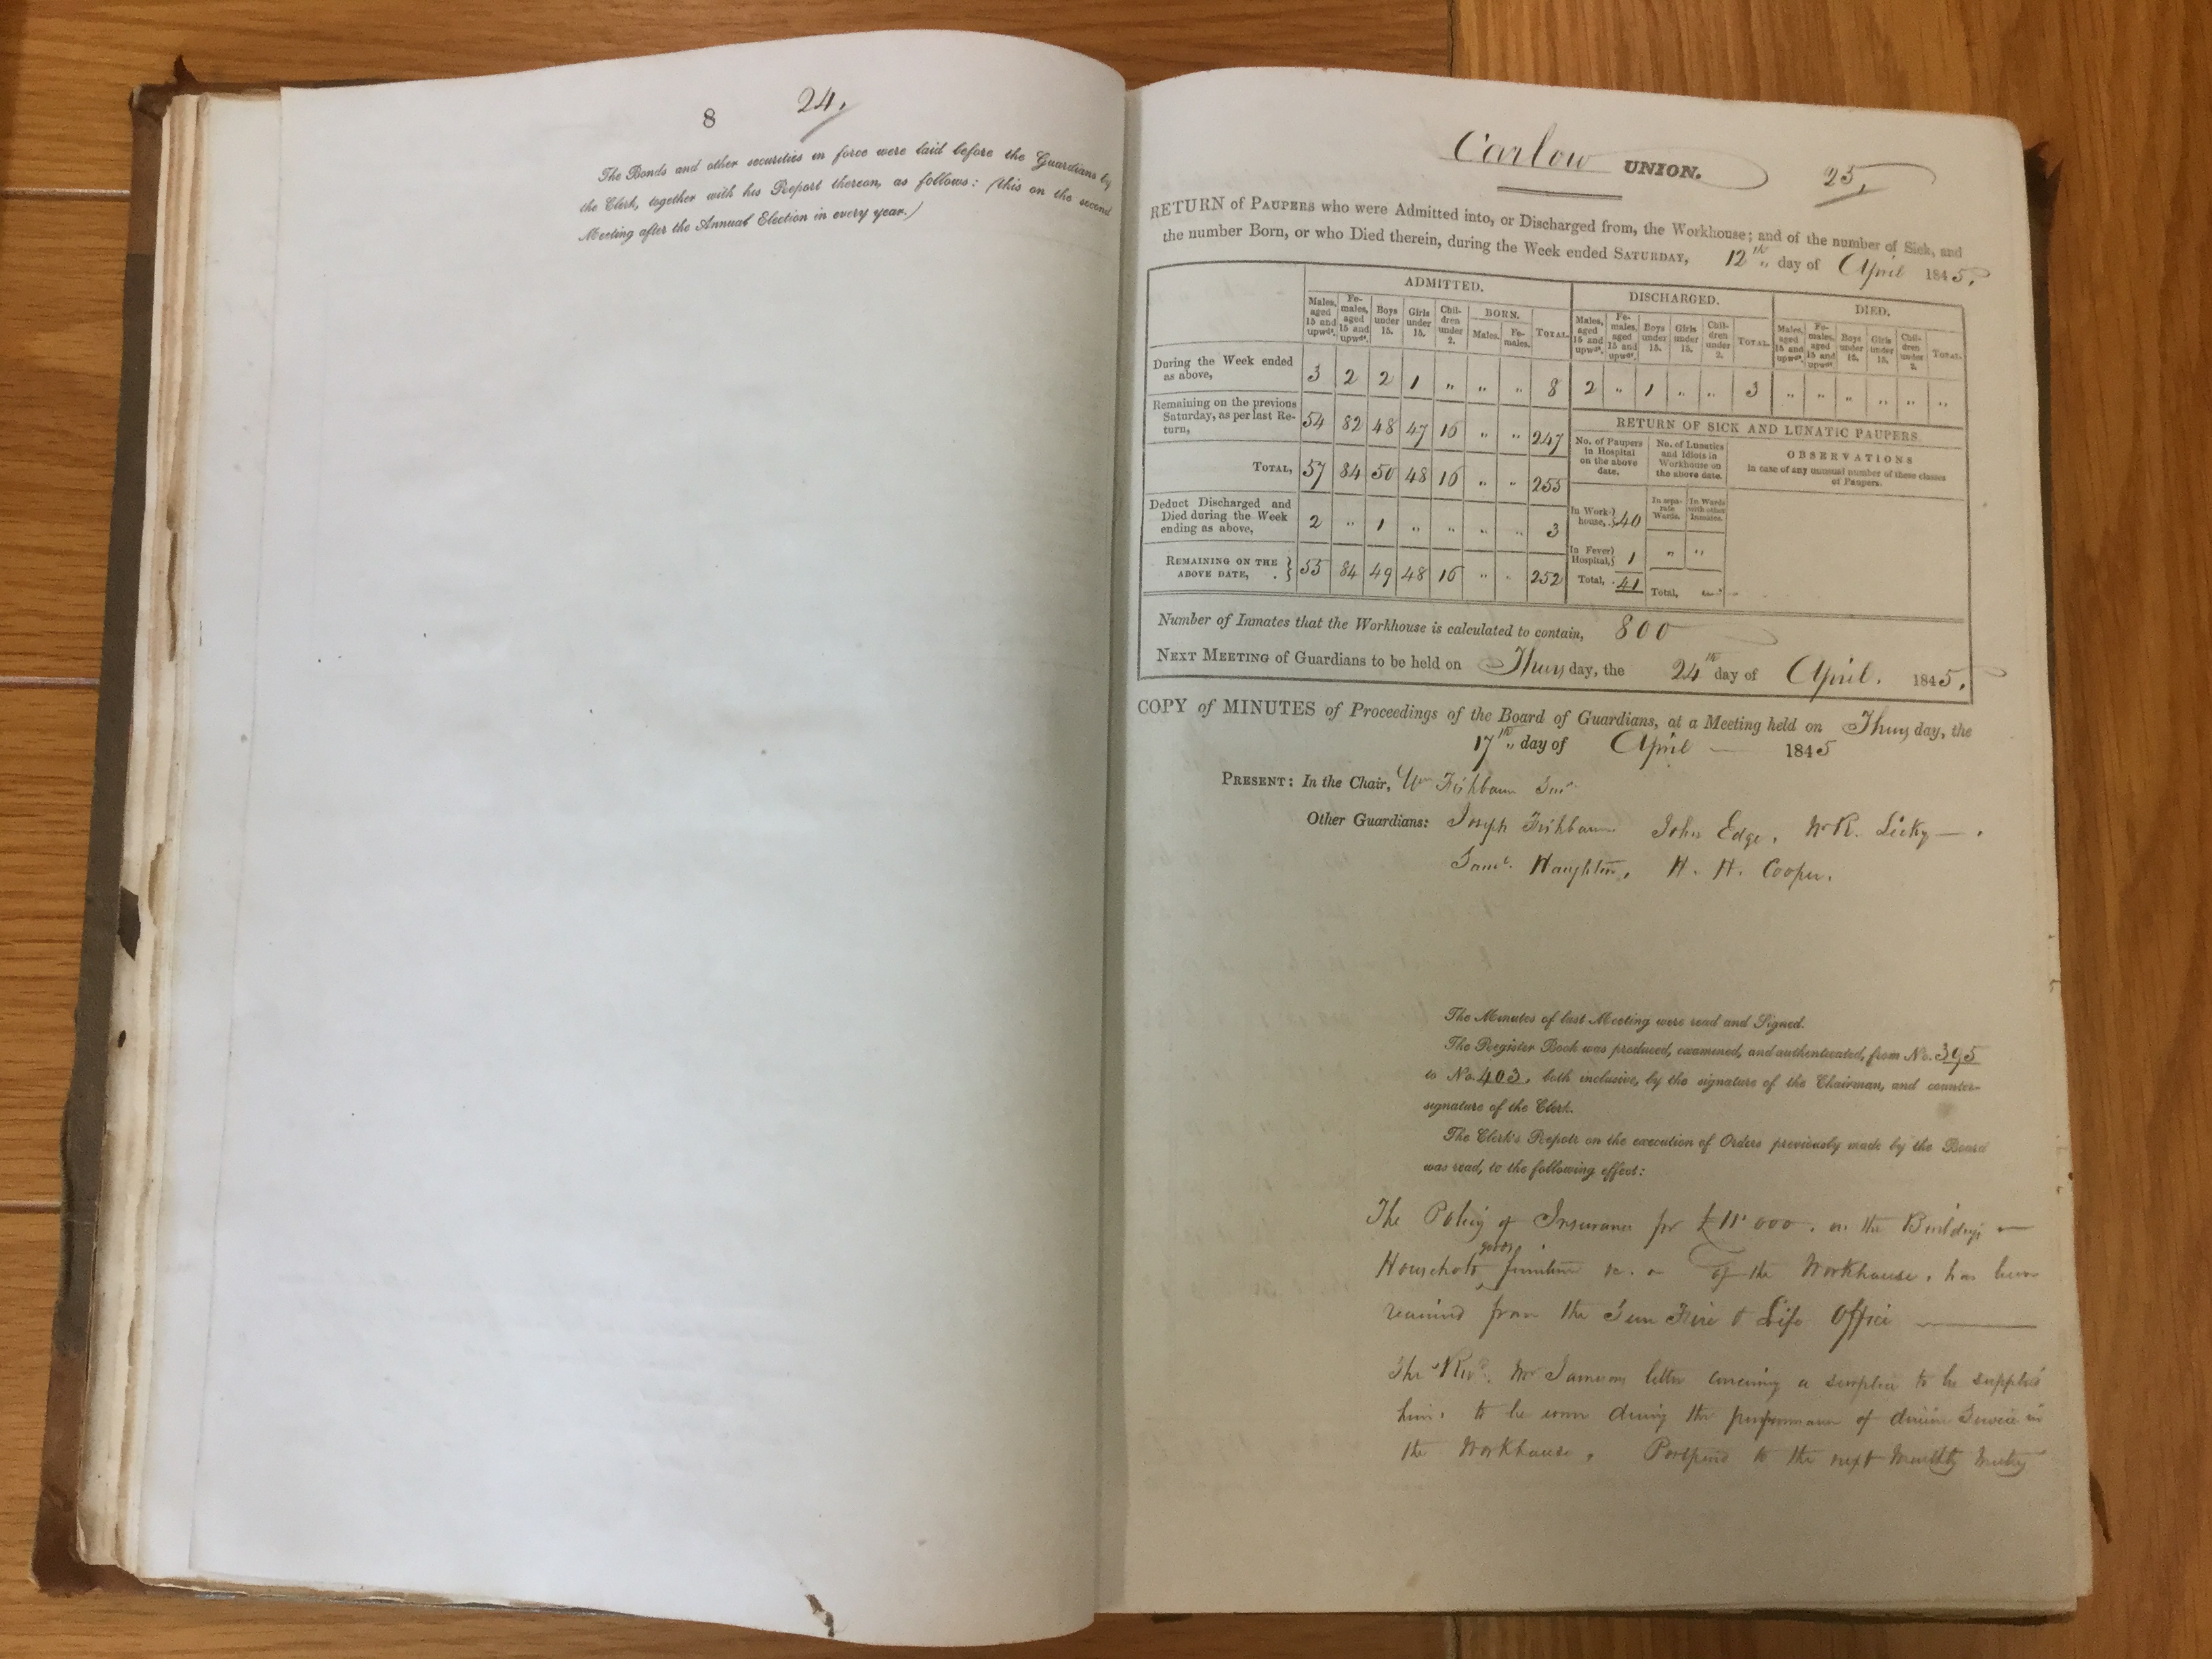 8 24.
The Bonds and other securities in force were laid before the Guardians by
the Clerk, together with his Report thereon, as follows: (this on the second
Meeting after the Annual Election in every year.)
Carlow UNION. 25.
RETURN of PAUPERS who were Admitted into, or Discharged from, the Workhouse; and of the number of Sick, and
the number Born, or who Died therein, during the Week ended SATURDAY, 12th day of April 1845.
ADMITTED. DISCHARGED. DIED.
Males, aged 15 and upwds. Females, aged 15 and upwds. Boys under 15. Girls under 15. Children under 2. BORN. Males. Females. TOTAL. Males, aged 15 and upwds. Females, aged 15 and upwds. Boys under 15. Girls under 15. Children under 2. TOTAL. Males, aged 15 and upwds. Females, aged 15 and upwds. Boys under 15. Girls under 15. Children under 2. TOTAL.
During the Week ended as above, 3 2 2 1 " " " 8 2 " 1 " " 3 " " " " " "
Remaining on the previous Saturday, as per last Return, 54 82 48 47 16 " " 247
TOTAL, 57 84 50 48 16 " " 255
Deduct Discharged and Died during the Week ending as above, 2 " 1 " " " " 3
REMAINING ON THE ABOVE DATE, 55 84 49 48 16 " " 252
RETURN OF SICK AND LUNATIC PAUPERS.
No. of Paupers in Hospital on the above date. No. of Lunatics and Idiots in Workhouse on the above date. OBSERVATIONS in case of any unusual number of these classes of Paupers.
In separate Wards. In Wards with other Inmates.
In Workhouse, 40
In Fever Hospital, 1 " "
Total, 41 Total,
Number of Inmates that the Workhouse is calculated to contain, 800
NEXT MEETING of Guardians to be held on Thursday, the 24th day of April. 1845.
COPY of MINUTES of Proceedings of the Board of Guardians, at a Meeting held on Thursday, the
17th day of April 1845
PRESENT: In the Chair, Wm Fishbourne
Other Guardians: Joseph Fishbourne John Edge, W R. Lecky
Saml. Haughton, H. H. Cooper.
The Minutes of last Meeting were read and Signed.
The Register Book was produced, examined, and authenticated, from No. 395
to No. 403, both inclusive, by the signature of the Chairman, and counter-
signature of the Clerk.
The Clerk's Report on the execution of Orders previously made by the Board
was read, to the following effect:
The Policy of Insurance for £11'000. on the Buildings
Household goods, furniture &c. of the Workhouse. has been
received from the Sun Fire & Life Office
The Revd. Mr Jamesons letter concerning a surplice to be supplied
him. to be worn during the performance of divine Service in
the Workhouse. Postponed to the next Monthly Meeting